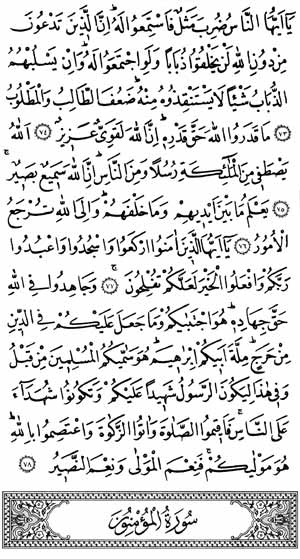 يَا اَيُّهَا النَّاسُ ضُرِبَ مَثَلٌ فَاسْتَمِعُوا لَهُ اِنَّ الَّذٖينَ تَدْعُونَ
مِنْ دُونِ اللّٰهِ لَنْ يَخْلُقُوا ذُبَابًا وَلَوِ اجْتَمَعُوا لَهُ وَاِنْ يَسْلُبْهُمُ
الذُّبَابُ شَيْـًٔا لَا يَسْتَنْقِذُوهُ مِنْهُ ضَعُفَ الطَّالِبُ وَالْمَطْلُوبُ
﴿٧٣﴾ مَا قَدَرُوا اللّٰهَ حَقَّ قَدْرِهٖ اِنَّ اللّٰهَ لَقَوِىٌّ عَزٖيزٌ ﴿٧٤﴾ اَللّٰهُ
يَصْطَفٖى مِنَ الْمَلٰٓئِكَةِ رُسُلًا وَمِنَ النَّاسِ اِنَّ اللّٰهَ سَمٖيعٌ بَصٖيرٌ
﴿٧٥﴾ يَعْلَمُ مَا بَيْنَ اَيْدٖيهِمْ وَمَا خَلْفَهُمْ وَاِلَى اللّٰهِ تُرْجَعُ
الْاُمُورُ ﴿٧٦﴾ يَا اَيُّهَا الَّذٖينَ اٰمَنُوا ارْكَعُوا وَاسْجُدُوا وَاعْبُدُوا
رَبَّكُمْ وَافْعَلُوا الْخَيْرَ لَعَلَّكُمْ تُفْلِحُونَ ﴿٧٧﴾ وَجَاهِدُوا فِى اللّٰهِ
حَقَّ جِهَادِهٖ هُوَ اجْتَبٰيكُمْ وَمَا جَعَلَ عَلَيْكُمْ فِى الدّٖينِ
مِنْ حَرَجٍ مِلَّةَ اَبٖيكُمْ اِبْرٰهٖيمَ هُوَ سَمّٰيكُمُ الْمُسْلِمٖينَ مِنْ قَبْلُ
وَفٖى هٰذَا لِيَكُونَ الرَّسُولُ شَهٖيدًا عَلَيْكُمْ وَتَكُونُوا شُهَدَاءَ
عَلَى النَّاسِ فَاَقٖيمُوا الصَّلٰوةَ وَاٰتُوا الزَّكٰوةَ وَاعْتَصِمُوا بِاللّٰهِ
هُوَ مَوْلٰيكُمْ فَنِعْمَ الْمَوْلٰى وَنِعْمَ النَّصٖيرُ ﴿٧٨﴾
سُورَةُ الْمُؤْمِنُونَ